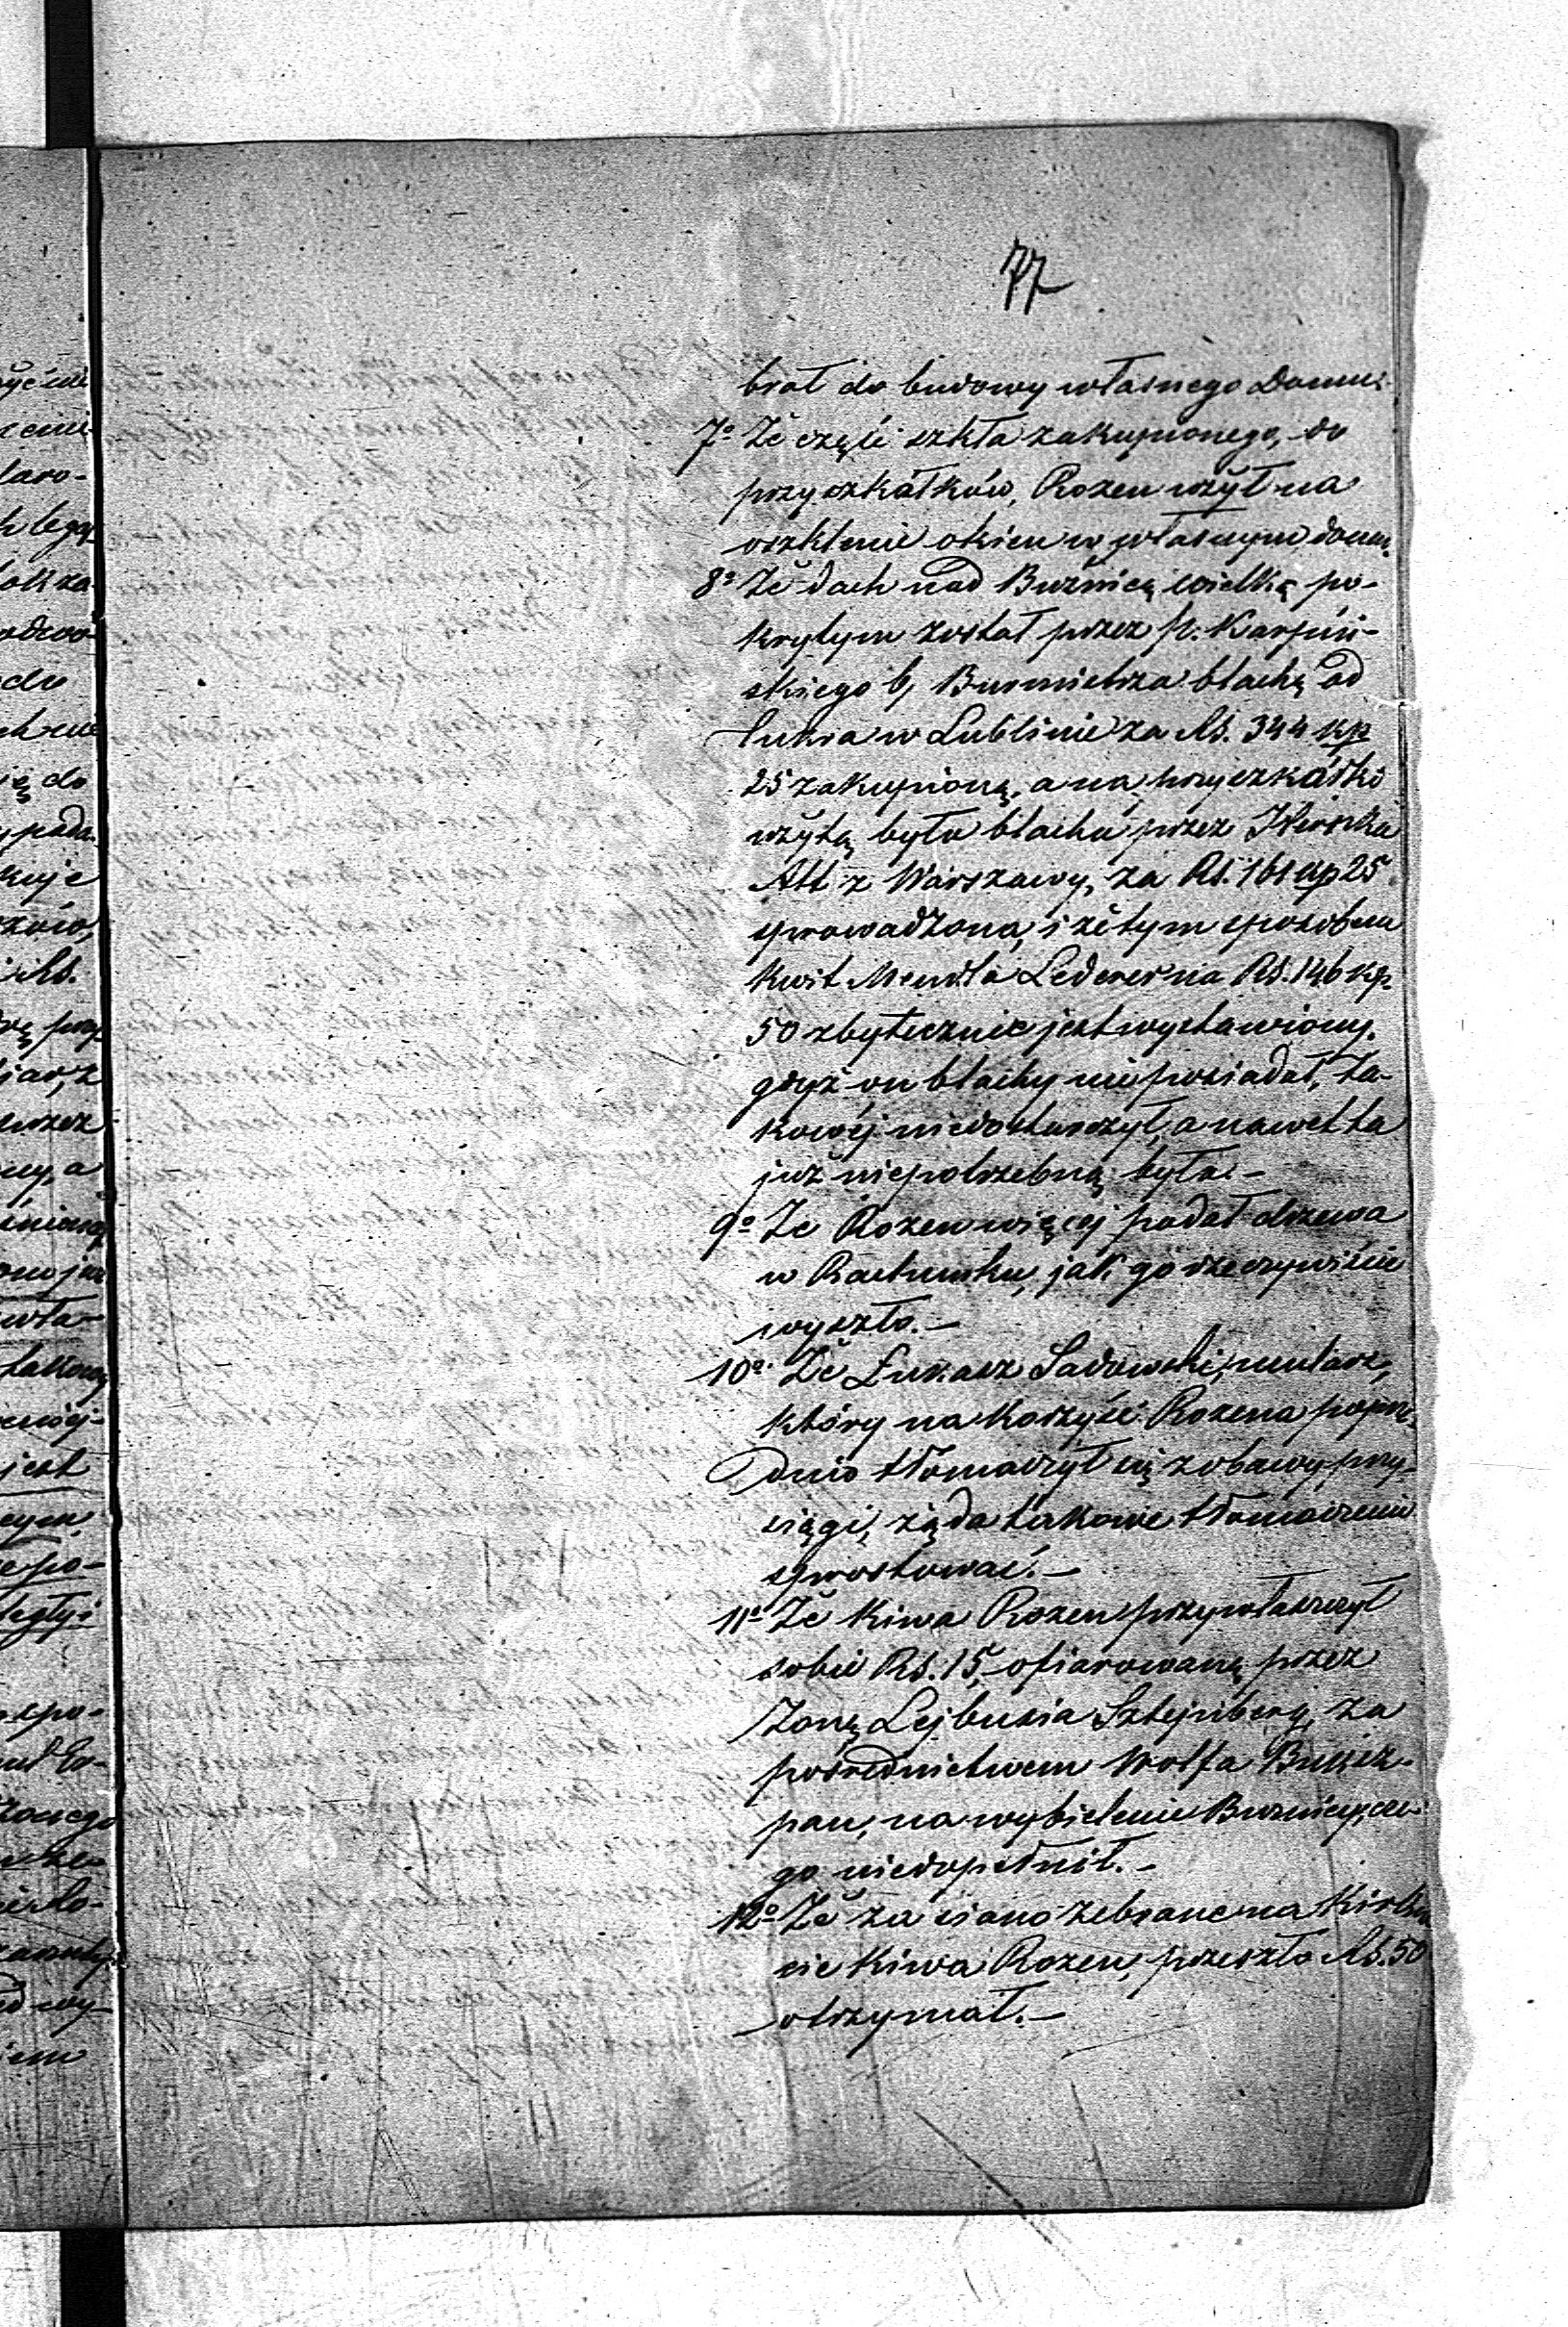 77
brał do budowy własnego Domu.
7º Że część szkła zakupionego, do
przyszkátków, Rozen użył na
oszklenie okien w własnym domu.
8º Że dach nad Bużnicą wielką po-
krytym został przez p. Karpiń-
skiego b, Burmistrza blachą od
Luksa w Lublinie za Rs. 344 kp
25 zakupioną, a na przyszkátki
użytą była blacha przez Herszka
Alt z Warszawy, za Rs. 161 kp 25
sprowadzona, i że tym sposobem
kwit Mendla Lederer na Rs. 146 kp.
50 zbytecznie jest wystawiony,
gdyż on blachy nieposiadał, ta-
kowéj niedostarczył, a nawet ta
już niepotrzebną była.-
9º Że Rozen więcej podał drzewa
w Rachunku, jak go rzeczywiście
wyszło.-
10º Że Łukasz Sadowski, mularz,
który na korzyść Rozena poprze-
dnio tłomaczył się z obawy przy-
sięgi, żąda takowe tłomaczenie
sprostować.-
11º Że Kiwa Rozen przywłaszczył
sobie Rs. 15, ofiarowaną przez
Żonę Lejbusia Sztejnberg, za
pośrednictwem Wolfa Buksz-
pan, na wybielenie Bużnicy, cze-
go niedopełnił.-
12º Że za siano zebrane na Kirku-
cie Kiwa Rozen, przeszło Rs. 50
otrzymał.-